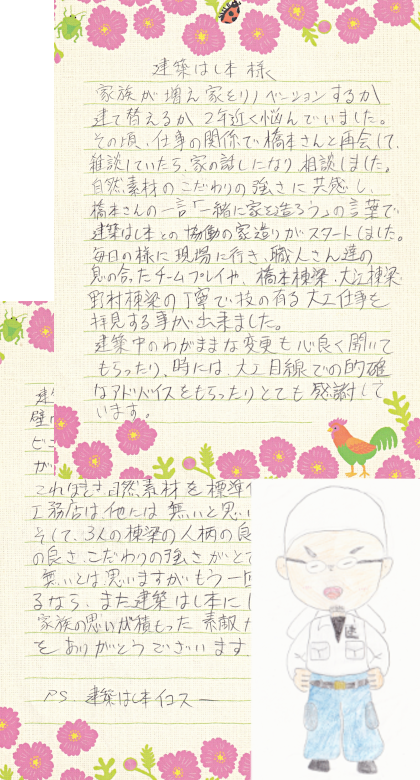 建築はし本 様
家族が増え家をリノベーションするか
建て替えるか 2年近く悩んでいました。
その頃、仕事の関係で橋本さんと再会して、
雑談していたら、家の話しになり、相談しました。
自然素材のこだわりの強さに共感し、
橋本さんの一言「一緒に家を造ろう」の言葉で
建築はし本との協働の家造りがスタートしました。
毎日の様に現場に行き、職人さん達の
息の合ったチームプレイや、橋本棟梁、大江棟梁
野村棟梁の丁寧で技の有る大工仕事を
拝見する事が出来ました。
建築中のわがままな変更も心良く聞いて
もらったり、時には、大工目線での的確
なアドバイスをもらったりとても感謝して
います。
建
壁
ビ
が
これほど自然素材を標準
工務店は他には無いと思い
そして、3人の棟梁の人柄の良
の良さ、こだわりの強さがと
無いとは思いますがもう一回
るなら、また建築はし本に
家族の思いが積もった素敵
をありがとうございます
PS. 建築はし本イコスー